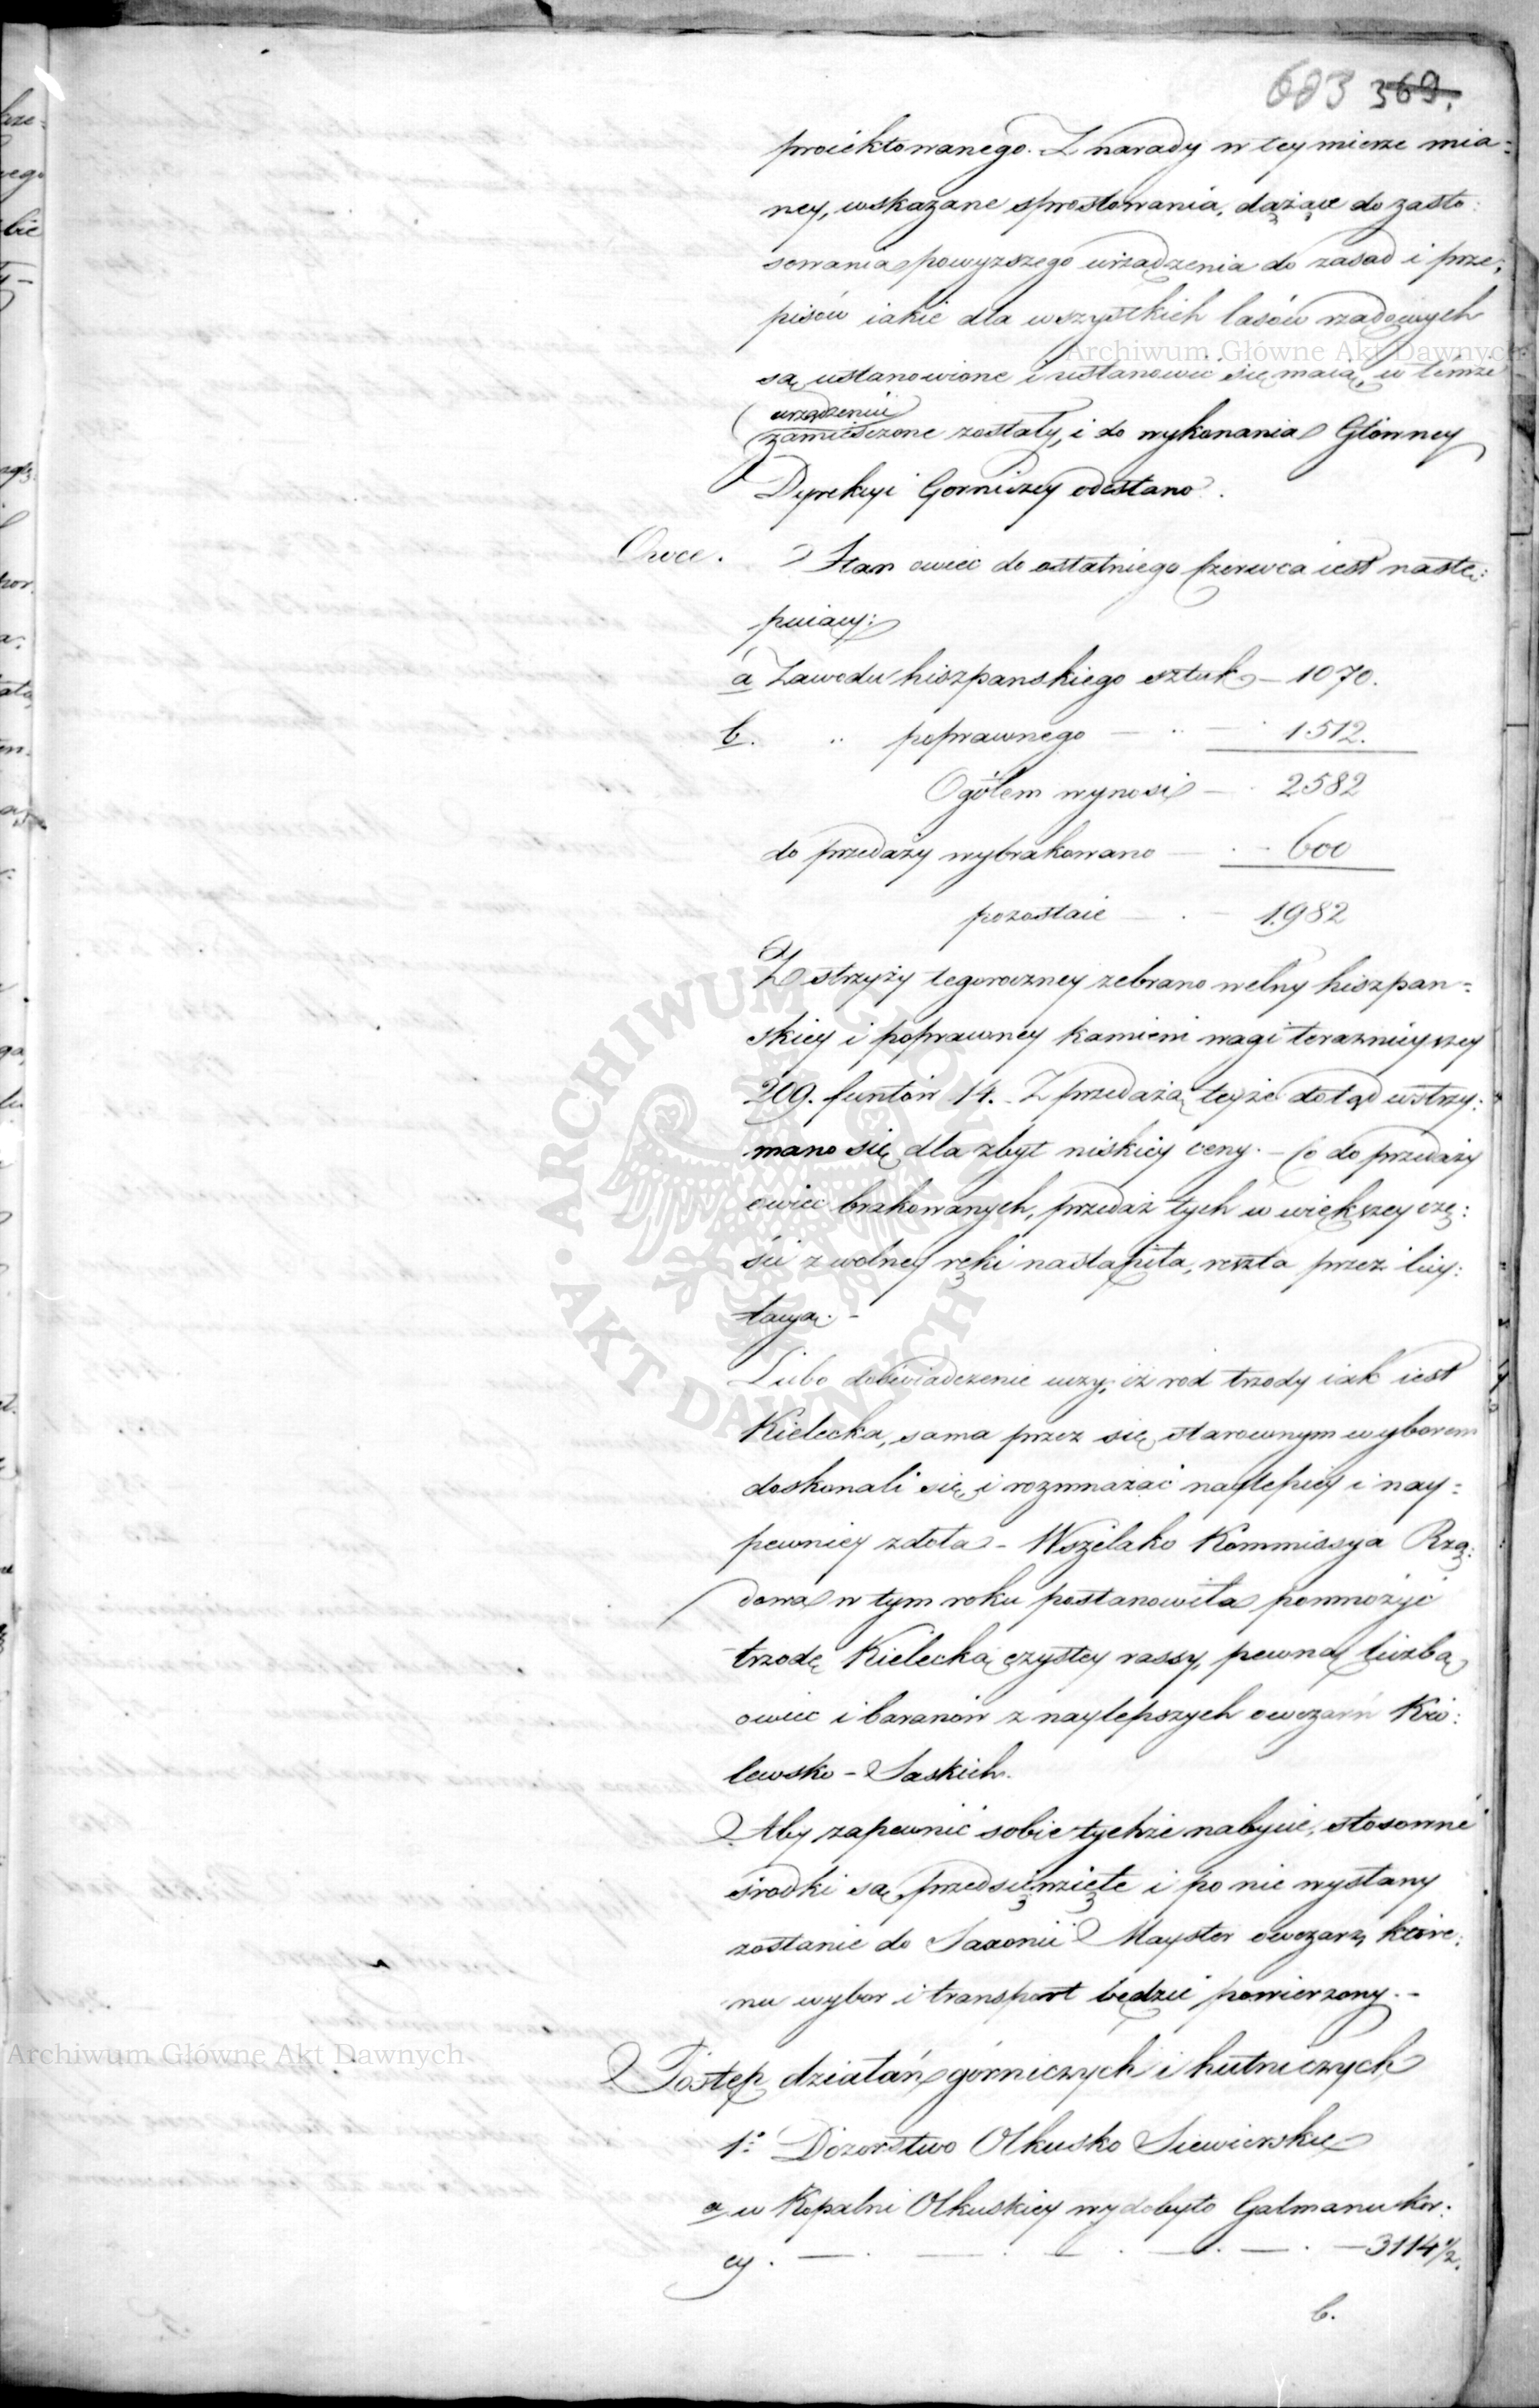 683 369.
proiektowanego. Z narady w tey mierze mia=
ney, wskazane sprostowania, dążące do zasto:
sowania powyzszego urządzenia do zasad i prze:
pisów iakie dla wszystkich lasów rządowych
są ustanowione i ustanowić się maią, w témże
urządzeniu
zamiesczone zostały, i do wykonania Główney
Dyrekcyi Gorniczey odesłano.
Owce.
Stan owiec do ostatniego Czerwca iest nastę:
puiący:
a Zawodu hiszpanskiego sztuk – 1070.
b. „ poprawnego — „ — 1512.
Ogółem wynosi — 2582
do przedaży wybrakowano — 600
pozostaie — . — 1982
Z strzyży tegoroczney zebrano wełny hiszpan=
skiey i poprawney kamieni wagi teraznieyszey
209. funtów 14. – Z przedażą teyże dotąd wstrzy:
mano się dla zbyt niskiéy ceny. – Co do przedaży
owiec brakowanych, przedaż tych w większey czę:
ści z wolney ręki nastąpiła, reszta przez licy:
tacyą. –
Lubo doświadczenie uczy, iż ród trzody iak iest
Kielecka, sama przez się starownym wyborem
doskonali się i rozmnażać naylepiéy i nay=
pewniey zdoła – Wszelako Kommissya Rzą:
dowa w tym roku postanowiła pomnożyć
trzodę Kielecką czystey rassy, pewną liczbą
owiec i baranów z naylepszych owczarń Kró:
lewsko – Saskich.
Aby zapewnić sobie tychże nabycie, stosowne
środki są przedsięwzięte i po nie wysłany
zostanie do Saxonii Mayster owczarz, które:
mu wybor i transport będzie powierzony. –
Postęp działań górniczych i hutniczych
1º Dozorstwo Olkusko Siewierskie
a, w Kopalni Olkuskiey wydobyto Galmanu kor:
cy . — . — . — . — . — 3114 1/2.
b.
Archiwum Główne Akt Dawnych
ARCHIWUM GŁÓWNE
AKT DAWNYCH
Archiwum Główne Akt Dawnych